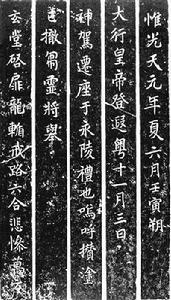 惟光天元年夏六月壬寅朔
大行皇帝登遐粵十一月三日
神駕遷座于永陵禮也嗚呼攢塗
撤靈將舉
玄堂啓扉龍輴戒路六合悲慘萬